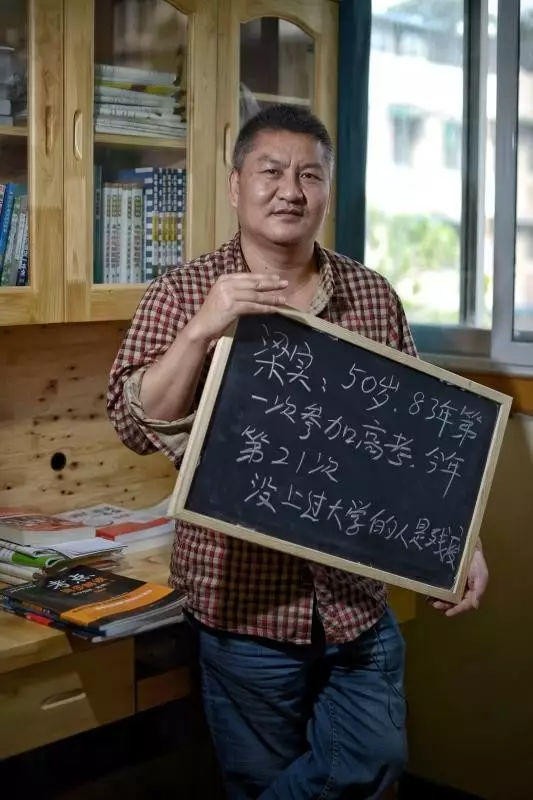 梁实：50岁.83年第
一次参加高考.今年
第21次
没上过大学的人是残